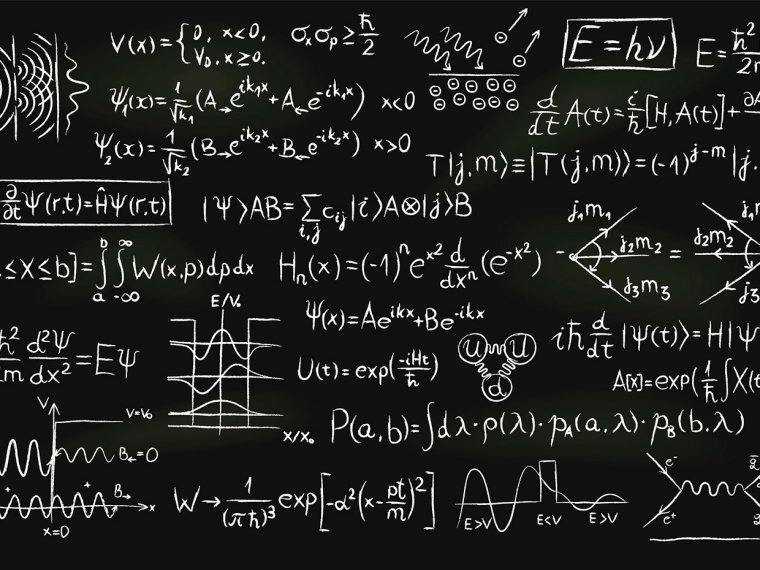 V(x) = { 0, x<0,
V₀, x≥0.
σₓσₚ ≥ ħ/2
⊖
⊖
⊖ ⊖ ⊖ ⊖ ⊖
⊖ ⊖ ⊖ ⊖
E = hν
E = ħ²
2m
ψ₁(x) = 1/√k₁ (A→e^{ik₁x} + A←e^{-ik₁x}) x<0
d/dt A(t) = i/ħ [H, A(t)] + ∂A
ψ₂(x) = 1/√k₂ (B→e^{ik₂x} + B←e^{-ik₂x}) x>0
T|j,m⟩ ≡ |T(j,m)⟩ = (-1)^{j-m} |j,
∂/∂t Ψ(r,t) = ĤΨ(r,t)
|Ψ⟩AB = Σ_{i,j} c_{ij} |i⟩A⊗|j⟩B
j₁m₁
j₂m₂
j₃m₃
=
j₁m
j₂m₂
j₃
≤X≤b] = ∫_a^b ∫_{-∞}^∞ W(x,p) dp dx
Hₙ(x) = (-1)ⁿ e^{x²} d/dxⁿ (e^{-x²})
E/V₀
x/x₀
Ψ(x) = Ae^{ikx} + Be^{-ikx}
ħ²/m d²Ψ/dx² = EΨ
U(t) = exp(-iHt/ħ)
u u
d
iħ d/dt |Ψ(t)⟩ = H|Ψ
A[x] = exp(1/ħ ∫X(t
P(a,b) = ∫dλ·ρ(λ)·p_A(a,λ)·p_B(b,λ)
V
V=V₀
B←=0
+ +
B→
x
x=0
W → 1/(πħ)³ exp[-α²(x - pt/m)²]
E>V E<V E>V
e⁻
e⁺